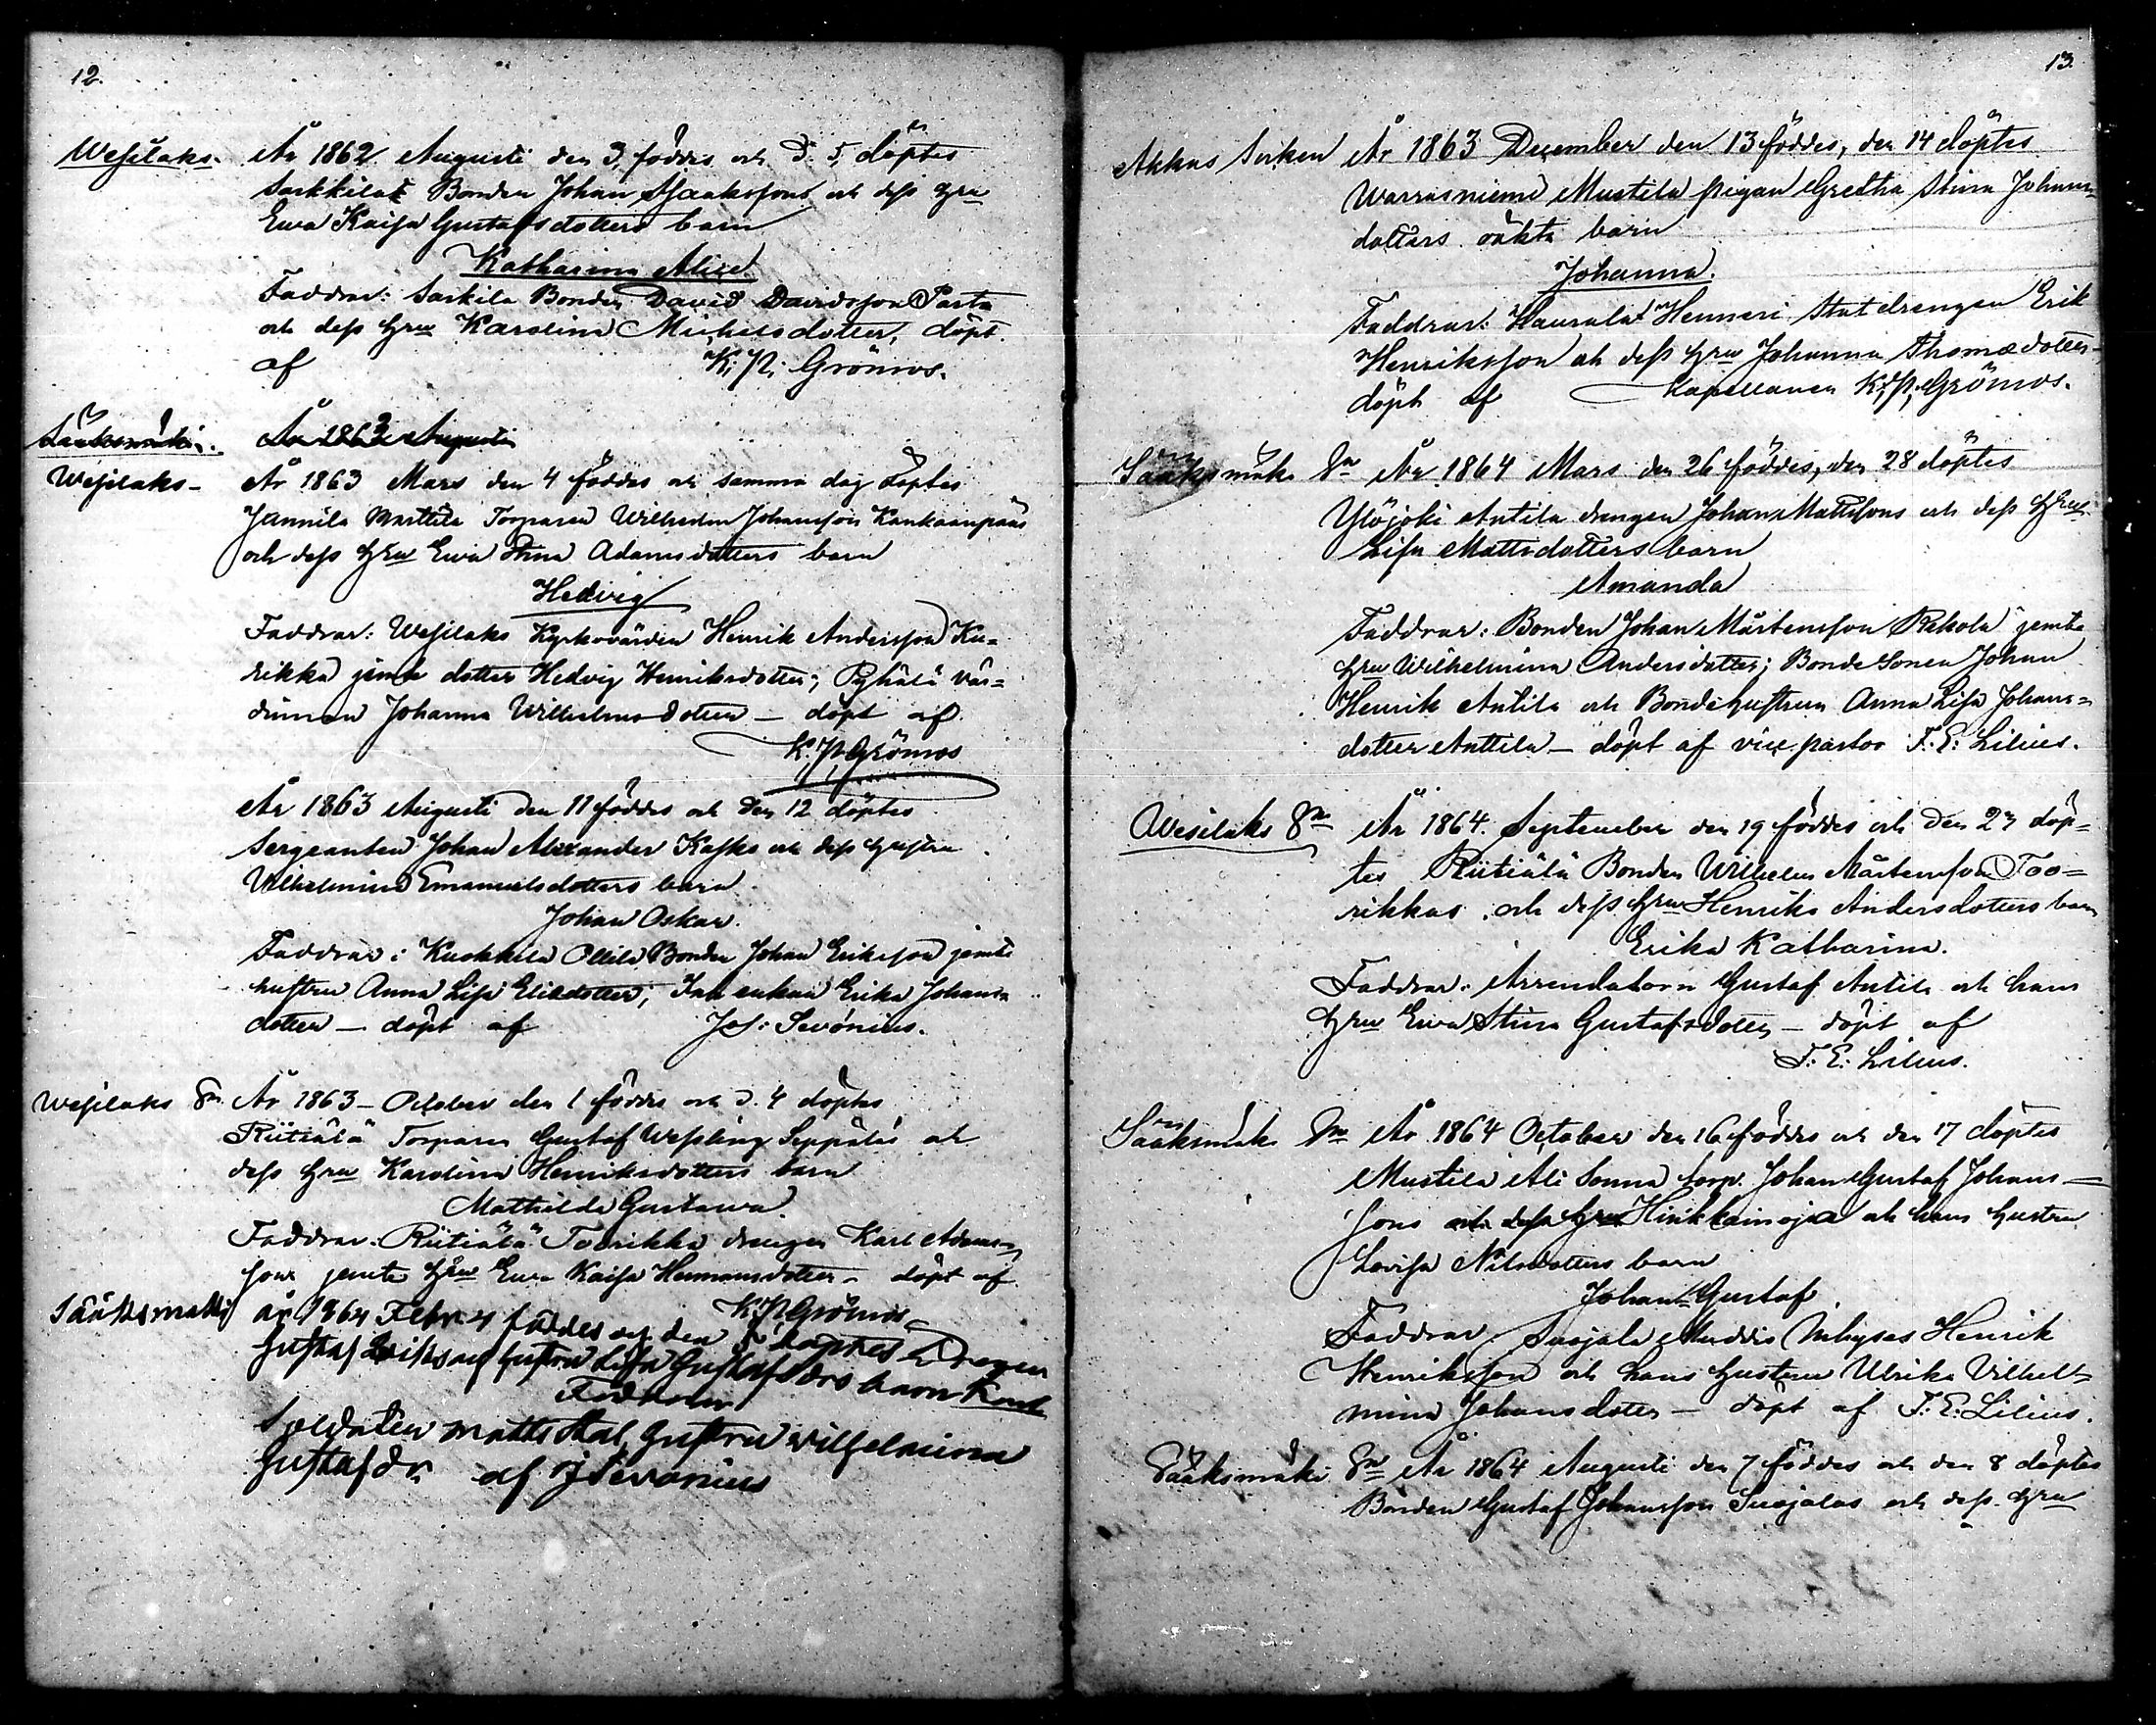 12.
Wesilaks. År 1862 Augusti den 3 föddes och d. 5 döptes
Sarkila Bonden Johan Isaakssons och dess Hru
Ewa Kaisa Gustafsdotters barn
Katharina Alice
Faddrar: Sarkila Bonden David Davidsson Parta
och dess Hru Karolina Michelsdotter, döpt.
af K. P. Grönros.
Sääksmäki. År 1863 Augusti
Wesilaks- År 1863 Mars den 4 föddes och samma dag döptes
Jannila Marttila Torparen Wilhelm Johansson Kankaanpääs
och dess Hru Ewa Stina Adamsdotters barn
Hedvig
Faddrar: Wesilaks Kyrkovärden Henrik Andersson Ku=
rikka jemte dotter Hedvig Henriksdotter; Pyhälä vär=
dinnan Johanna Wilhelmsdotter — döpt af
K. P. Grönros
År 1863 Augusti den 11 föddes och den 12 döptes
Sergeanten Johan Alexander Kasks och dess hustru
Wilhelmina Emanuelsdotters barn
Johan Oskar.
Faddrar: Kuokkala Ollila Bonden Johan Eriksson jemte
hustru Anna Lisa Eliedotter; Erika Johans
dotter — döpt af Jos: Sevónius.
Wesilaks Sn År 1863 – October den 1 föddes och d. 4 döptes
Riitiälä Torparen Gustaf Wessling Seppäläs och
dess Hru Karolina Henriksdotters barn
Mathilda Gustawa
Faddrar: Riitiälä Toorikka drengen Karl Adams-
son jemte Hru Ewa Kaisa Hermansdotter – döpt af
K. P. Grönros
Sääksmäki år 1864 Febr. 4 föddes och den döptes Drengen
Gustaf Eriks och hustru Lisa Gustafsdrs barn Karl
Faddrar
Soldaten Matts Stål, hustru Wilhelmina
Gustafdr af J Sevonius
13.
Akkas Socken År 1863 December den 13 föddes, den 14 döptes
Warrasniemi Mustila pigan Gretha Stina Johans=
dotters oäkta barn
Johanna.
Faddrar: Haurala Henneri Statdrengen Erik
Henriksson och dess Hru Johanna Thomædotter –
döpt af Kapellanen K. P. Grönros.
Sääksmäki Sn År 1864 Mars den 26 föddes, den 28 döptes
Ylöjoki Antila drengen Johan Mattssons och dess Hru
Lisa Mattsdotters barn
Amanda
Faddrar: Bonden Johan Mårtensson Rekola jemte
Hru Wilhelmina Andersdotter; Bonde Sonen Johan
Henrik Antila och Bondehustrun Anna Lisa Johans=
dotter Anttila — döpt af vice pastor F. E. Lilius.
Wesilaks Sn År 1864. September den 19 föddes och den 23 döp=
tes Riitiälä Bonden Wilhelm Mårtensson Too=
rikkas och dess Hru Henrika Andersdotters barn
Erika Katharina.
Faddrar: Arrendatorn Gustaf Antila och hans
Hru Ewa Stina Gustafsdotter — döpt af
F. E. Lilius.
Sääksmäki Sn År 1864 October den 16 föddes och den 17 döptes
Mustila Ali Sonna torp. Johan Gustaf Johans—
sons och dess Hru Hirikkainoja och hans hustru
Lovisa Nilsdotters barn
Johan Gustaf
Faddrar, Suojala Inhyses Henrik
Henriksson och hans hustru Ulrika Vilhel=
mina Johansdotter — döpt af F. E. Lilius.
Sääksmäki Sn År 1864 Augusti den 7 föddes och den 8 döptes
Bonden Gustaf Johansson Suojalas och dess Hru